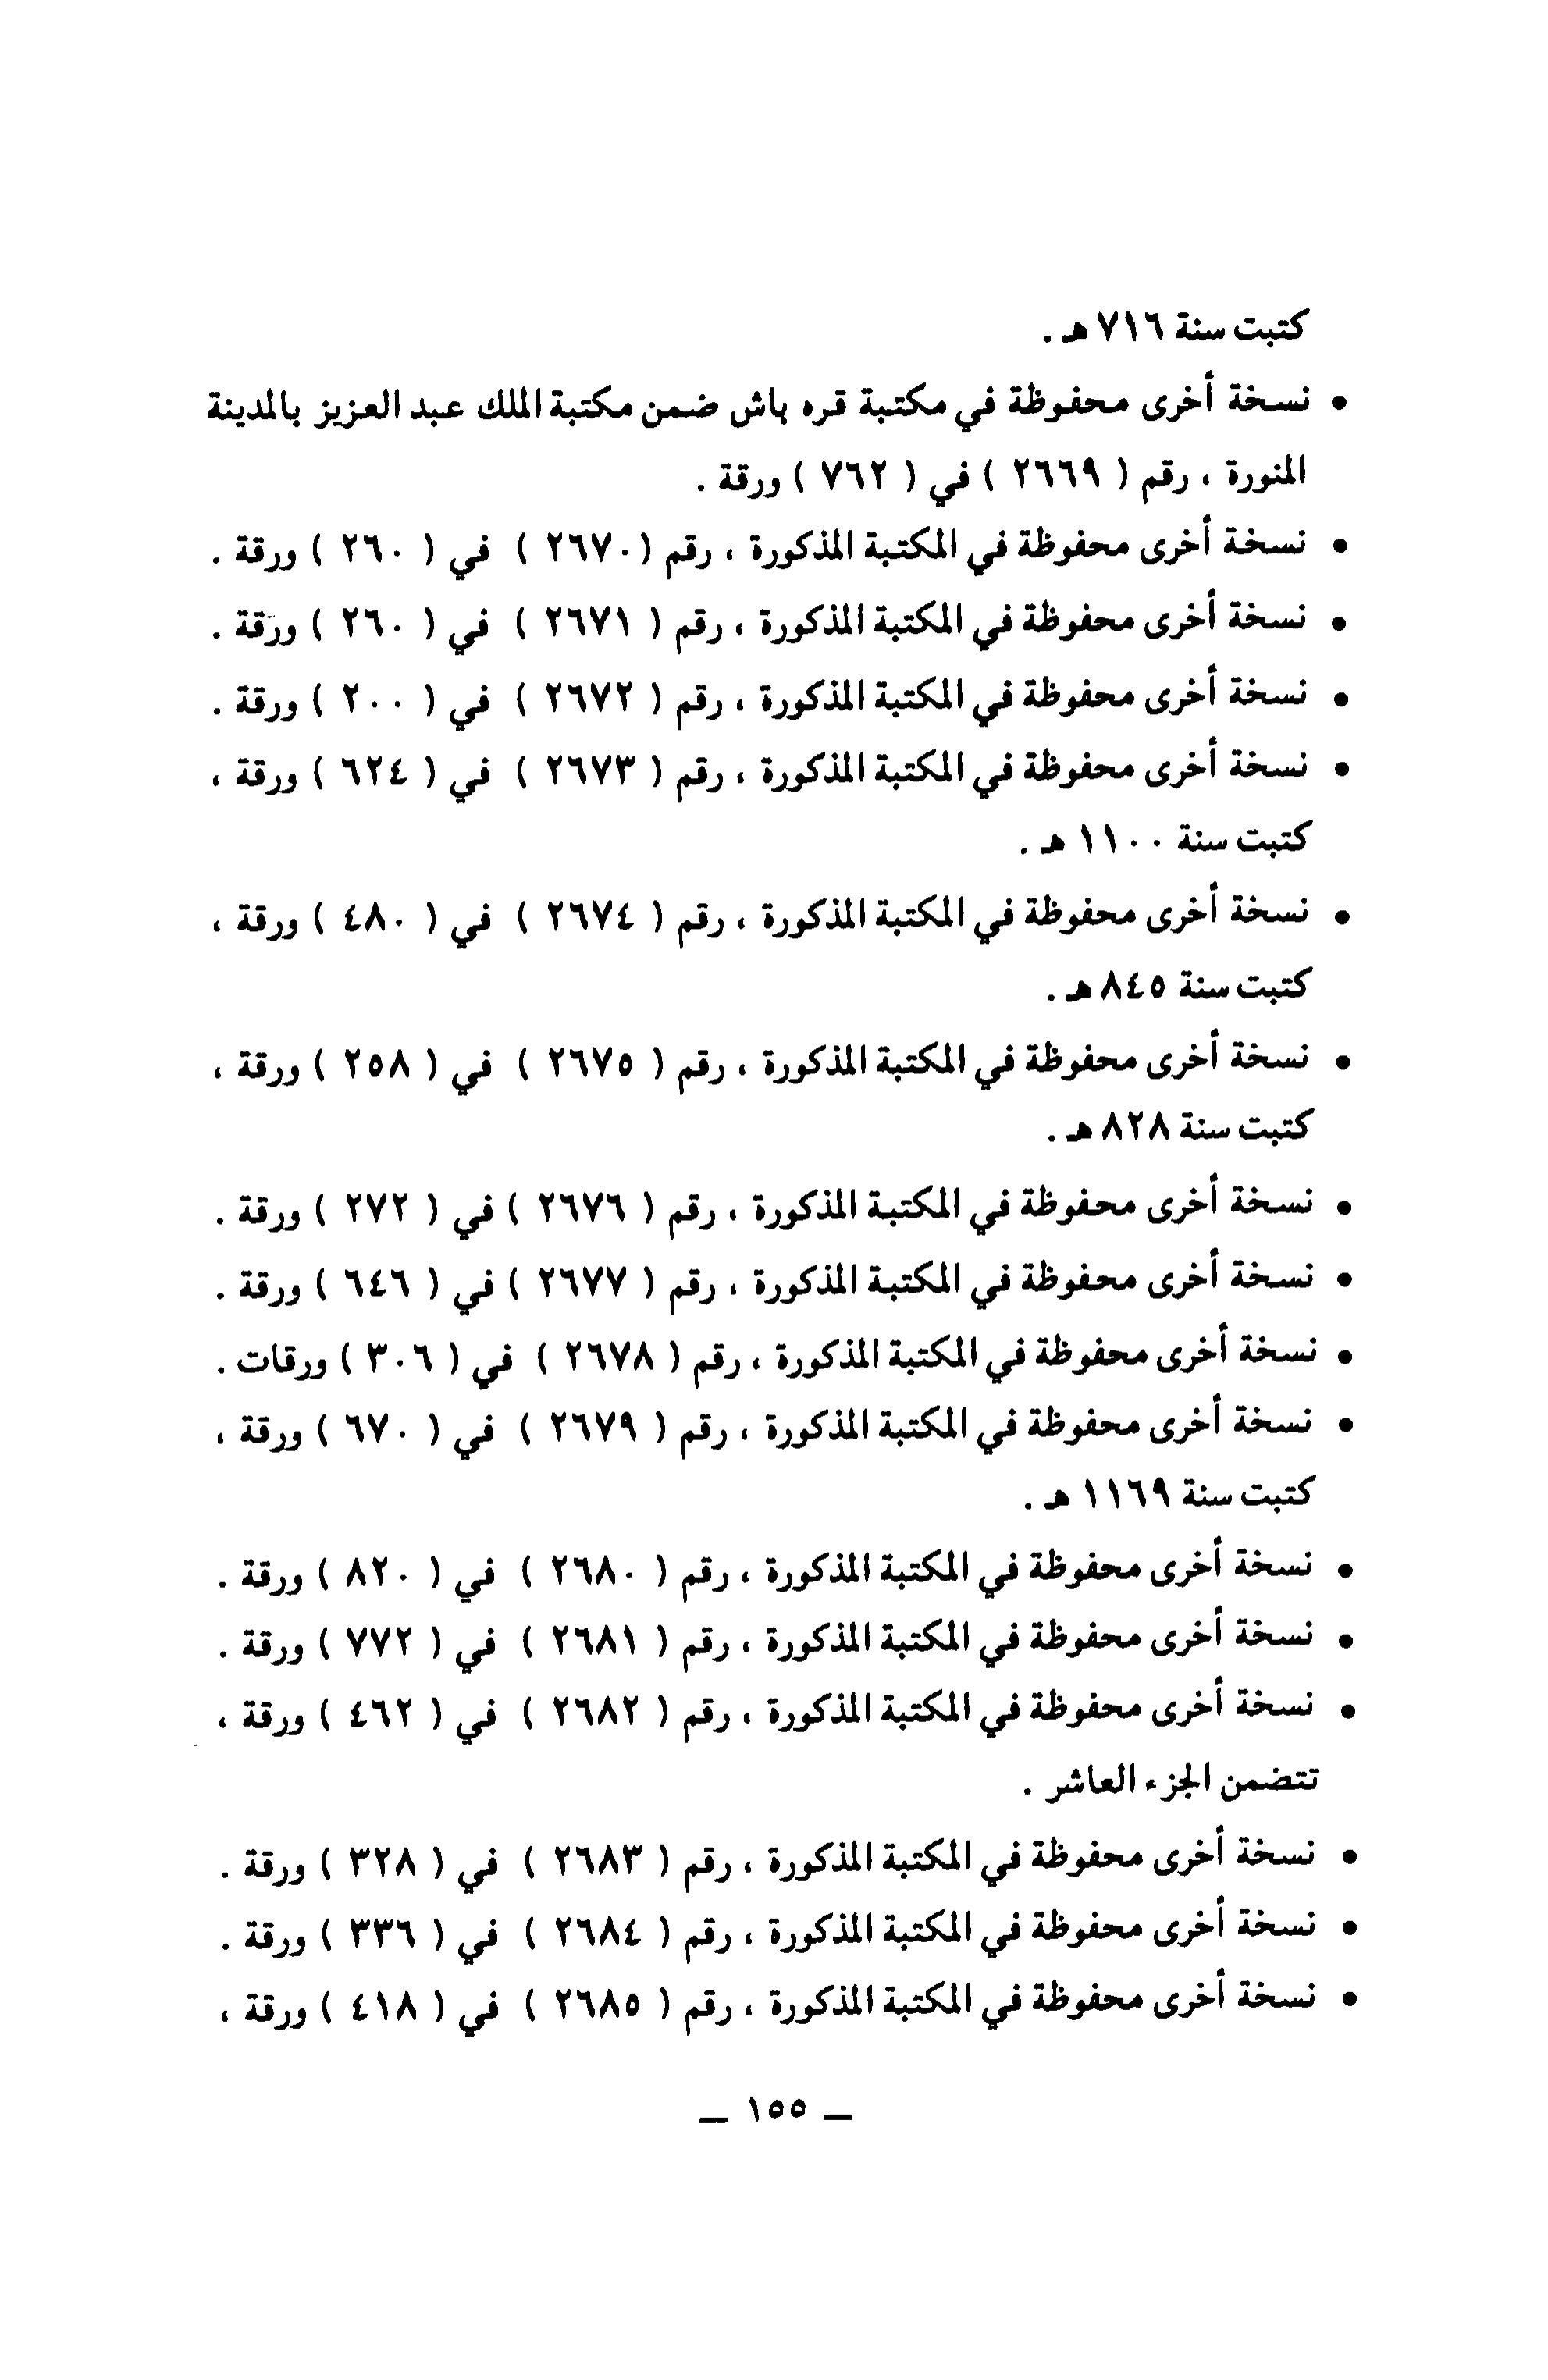 كتبت سنة ٧١٦ هـ .
• نسخة أخرى محفوظة في مكتبة قره باش ضمن مكتبة الملك عبد العزيز بالمدينة
المنورة ، رقم ( ٢٦٦٩ ) في ( ٧٦٢ ) ورقة .
• نسخة أخرى محفوظة في المكتبة المذكورة ، رقم ( ٢٦٧٠ ) في ( ٢٦٠ ) ورقة .
• نسخة أخرى محفوظة في المكتبة المذكورة ، رقم ( ٢٦٧١ ) في ( ٢٦٠ ) ورقة .
• نسخة أخرى محفوظة في المكتبة المذكورة ، رقم ( ٢٦٧٢ ) في ( ٢٠٠ ) ورقة .
• نسخة أخرى محفوظة في المكتبة المذكورة ، رقم ( ٢٦٧٣ ) في ( ٦٢٤ ) ورقة ،
كتبت سنة ١١٠٠ هـ .
• نسخة أخرى محفوظة في المكتبة المذكورة ، رقم ( ٢٦٧٤ ) في ( ٤٨٠ ) ورقة ،
كتبت سنة ٨٤٥ هـ .
• نسخة أخرى محفوظة في المكتبة المذكورة ، رقم ( ٢٦٧٥ ) في ( ٢٥٨ ) ورقة ،
كتبت سنة ٨٢٨ هـ .
• نسخة أخرى محفوظة في المكتبة المذكورة ، رقم ( ٢٦٧٦ ) في ( ٢٧٢ ) ورقة .
• نسخة أخرى محفوظة في المكتبة المذكورة ، رقم ( ٢٦٧٧ ) في ( ٦٤٦ ) ورقة .
• نسخة أخرى محفوظة في المكتبة المذكورة ، رقم ( ٢٦٧٨ ) في ( ٣٠٦ ) ورقات .
• نسخة أخرى محفوظة في المكتبة المذكورة ، رقم ( ٢٦٧٩ ) في ( ٦٧٠ ) ورقة ،
كتبت سنة ١١٦٩ هـ .
• نسخة أخرى محفوظة في المكتبة المذكورة ، رقم ( ٢٦٨٠ ) في ( ٨٢٠ ) ورقة .
• نسخة أخرى محفوظة في المكتبة المذكورة ، رقم ( ٢٦٨١ ) في ( ٧٧٢ ) ورقة .
• نسخة أخرى محفوظة في المكتبة المذكورة ، رقم ( ٢٦٨٢ ) في ( ٤٦٢ ) ورقة ،
تتضمن الجزء العاشر .
• نسخة أخرى محفوظة في المكتبة المذكورة ، رقم ( ٢٦٨٣ ) في ( ٣٢٨ ) ورقة .
• نسخة أخرى محفوظة في المكتبة المذكورة ، رقم ( ٢٦٨٤ ) في ( ٣٣٦ ) ورقة .
• نسخة أخرى محفوظة في المكتبة المذكورة ، رقم ( ٢٦٨٥ ) في ( ٤١٨ ) ورقة ،
— ١٥٥ —